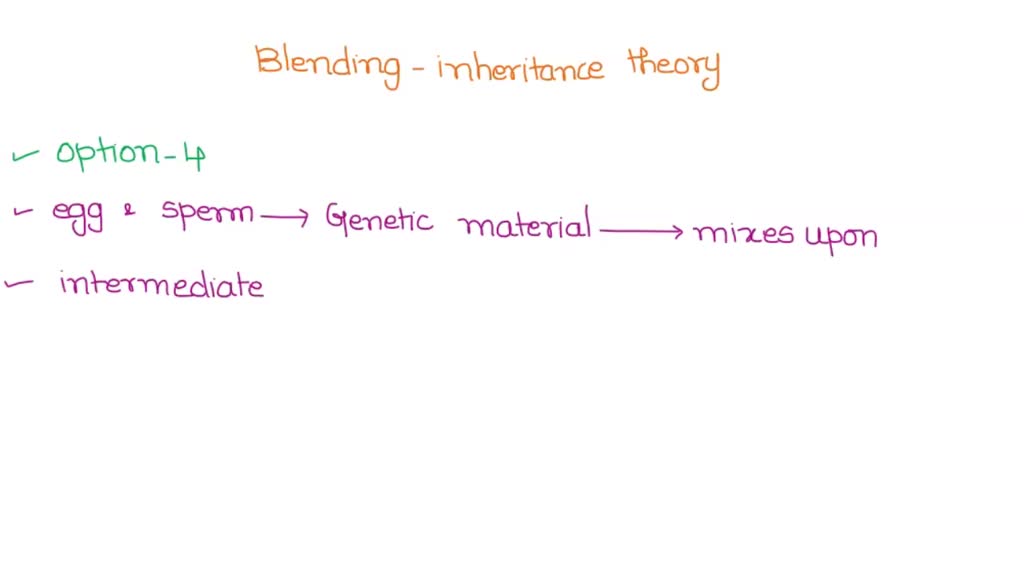 Blending - inheritance theory
✓ option - 4
✓ egg & sperm → Genetic material → mixes upon
✓ intermediate